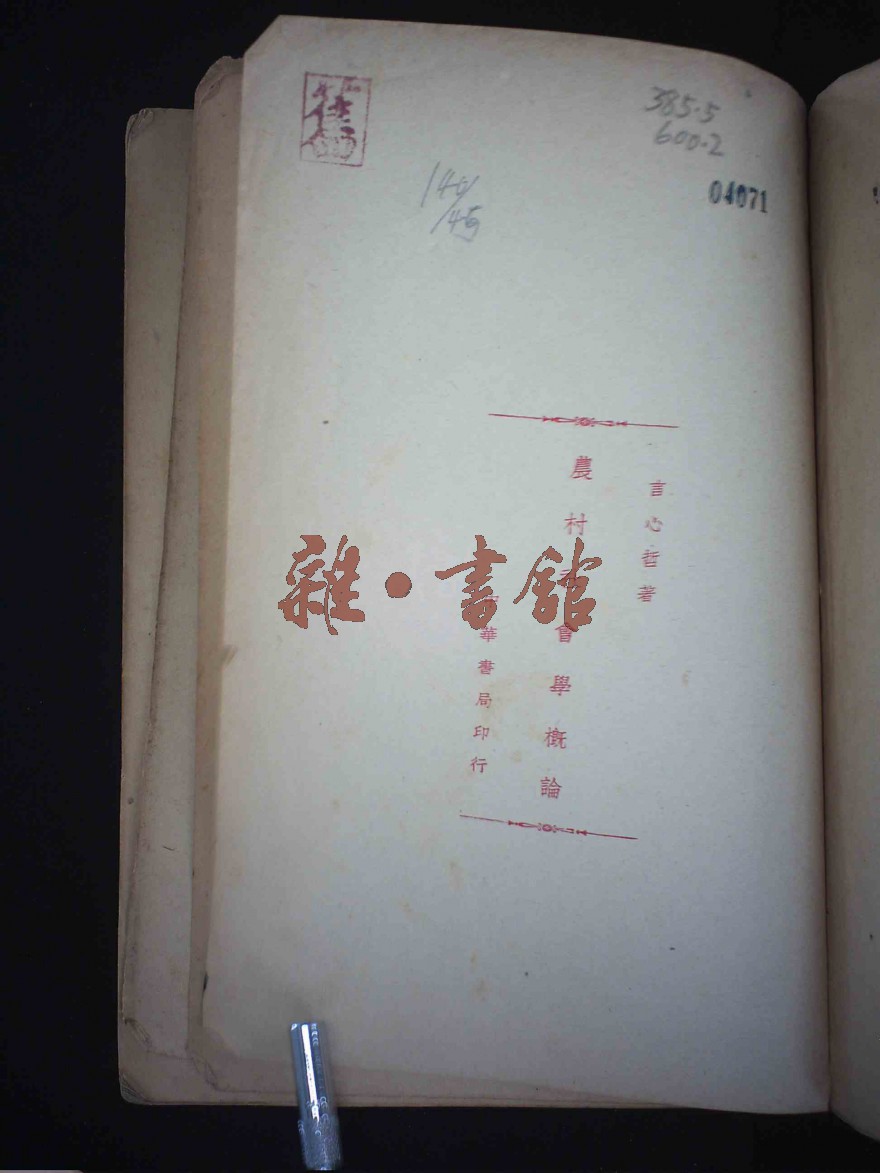 舊
385.5
600.2
04071
140/
/45
言心哲著
農村社會學概論
中華書局印行
雜·書館